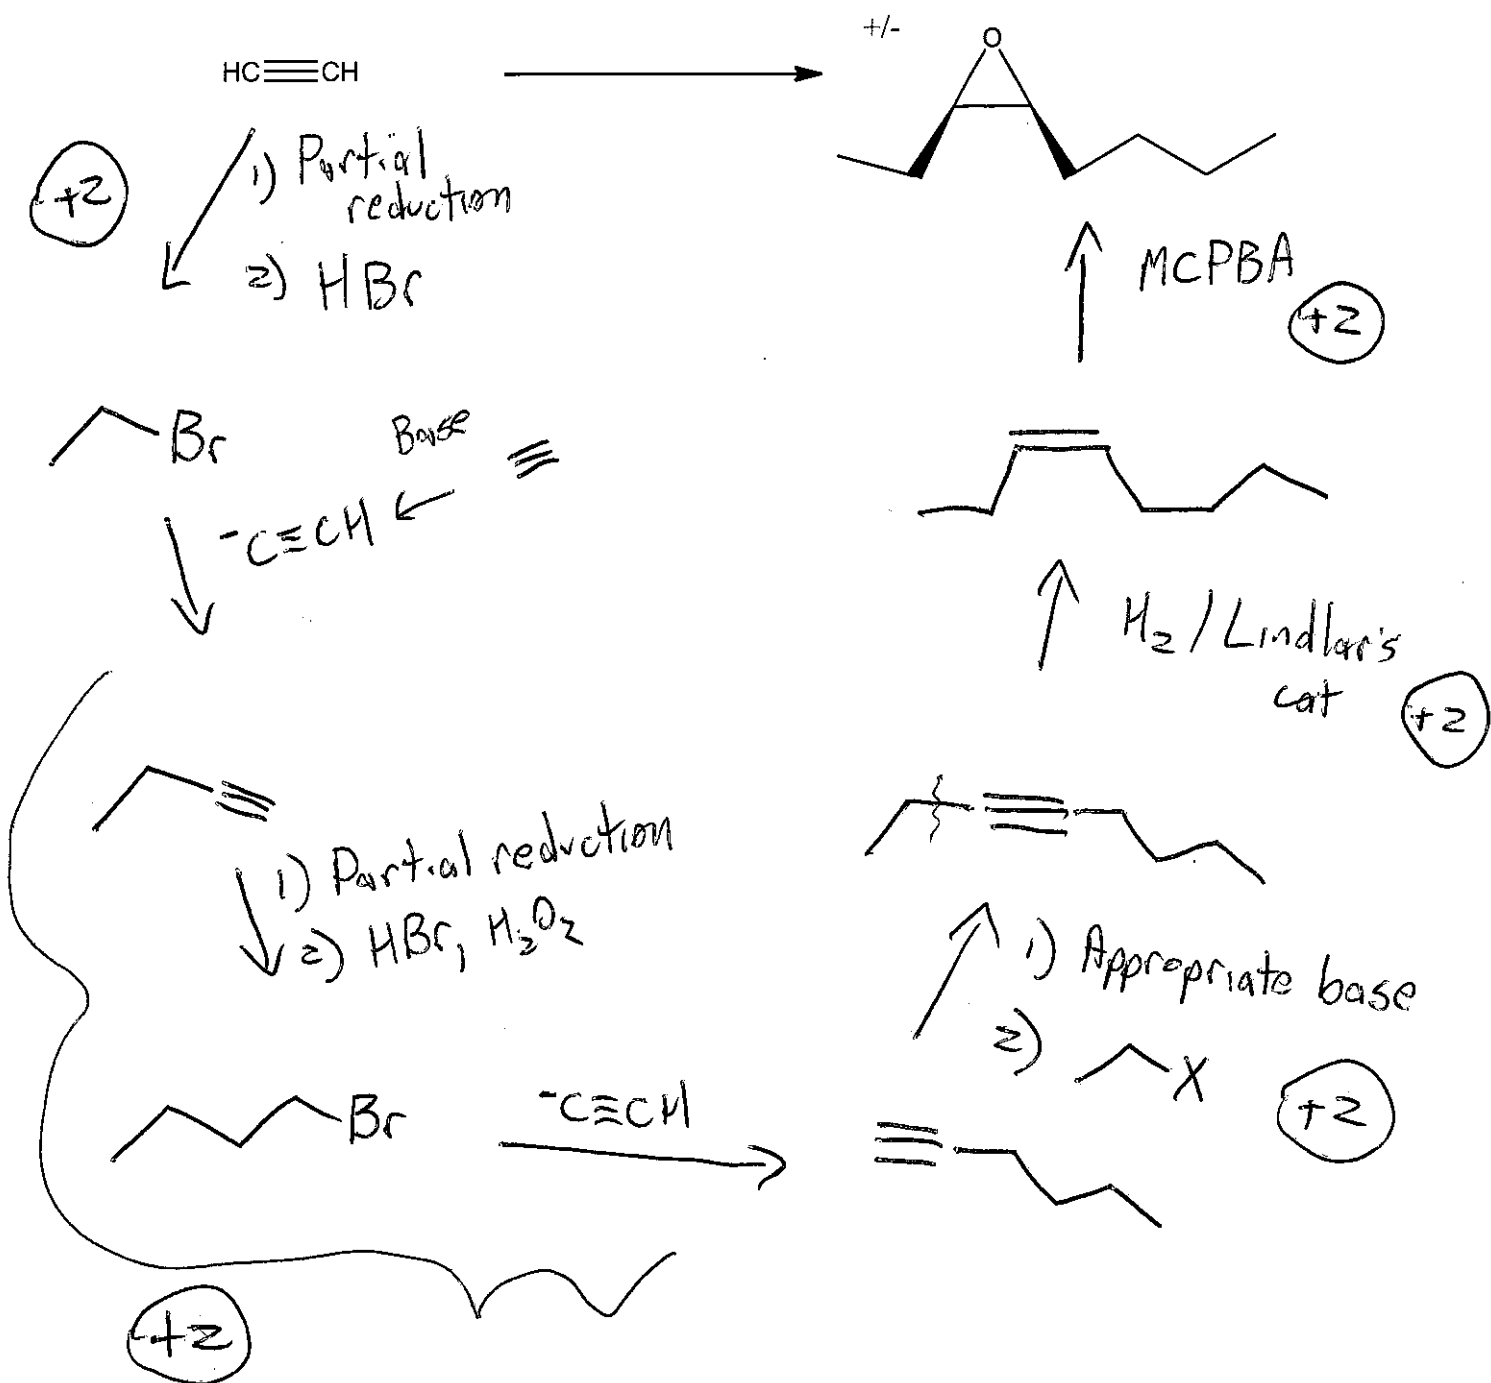 +/-
O
HC≡CH
1) Partial
reduction
+2
2) HBr
MCPBA
+2
Br
Base
≡
⁻C≡CH
H₂/Lindlar's
cat
+2
1) Partial reduction
2) HBr, H₂O₂
1) Appropriate base
2) X
+2
Br
⁻C≡CH
+2